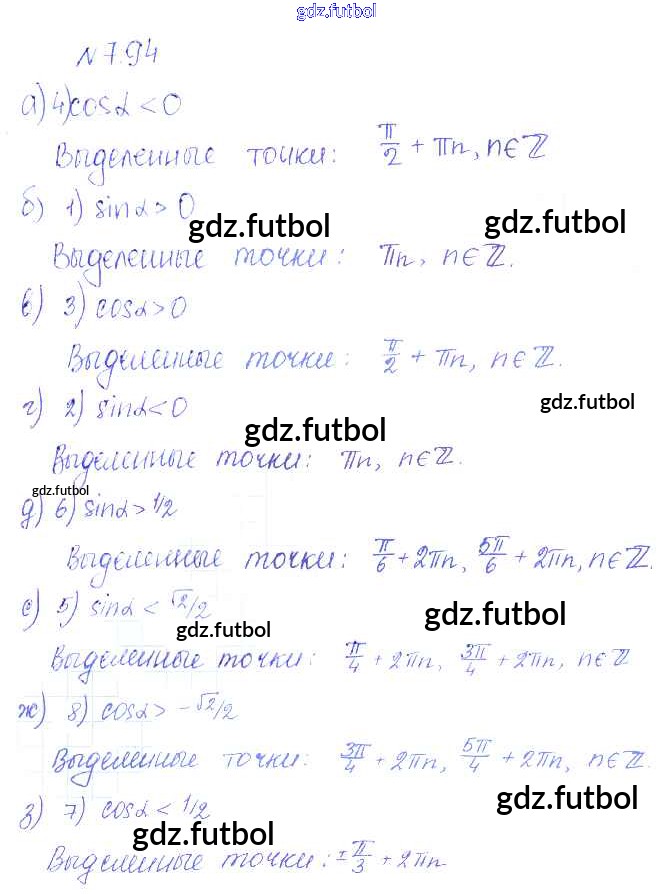 gdz.futbol
N 7.94
а) 4) cosα < 0
Выделенные точки: π/2 + πn, n∈ℤ
б) 1) sinα > 0
gdz.futbol
gdz.futbol
Выделенные точки: πn, n∈ℤ.
в) 3) cosα > 0
Выделенные точки: π/2 + πn, n∈ℤ.
г) 2) sinα < 0
gdz.futbol
gdz.futbol
Выделенные точки: πn, n∈ℤ.
gdz.futbol
д) 6) sinα > 1/2
Выделенные точки: π/6 + 2πn, 5π/6 + 2πn, n∈ℤ.
е) 5) sinα < √2/2
gdz.futbol
gdz.futbol
Выделенные точки: π/4 + 2πn, 3π/4 + 2πn, n∈ℤ
ж) 8) cosα > -√2/2
Выделенные точки: 3π/4 + 2πn, 5π/4 + 2πn, n∈ℤ.
gdz.futbol
з) 7) cosα < 1/2
gdz.futbol
Выделенные точки: ±π/3 + 2πn